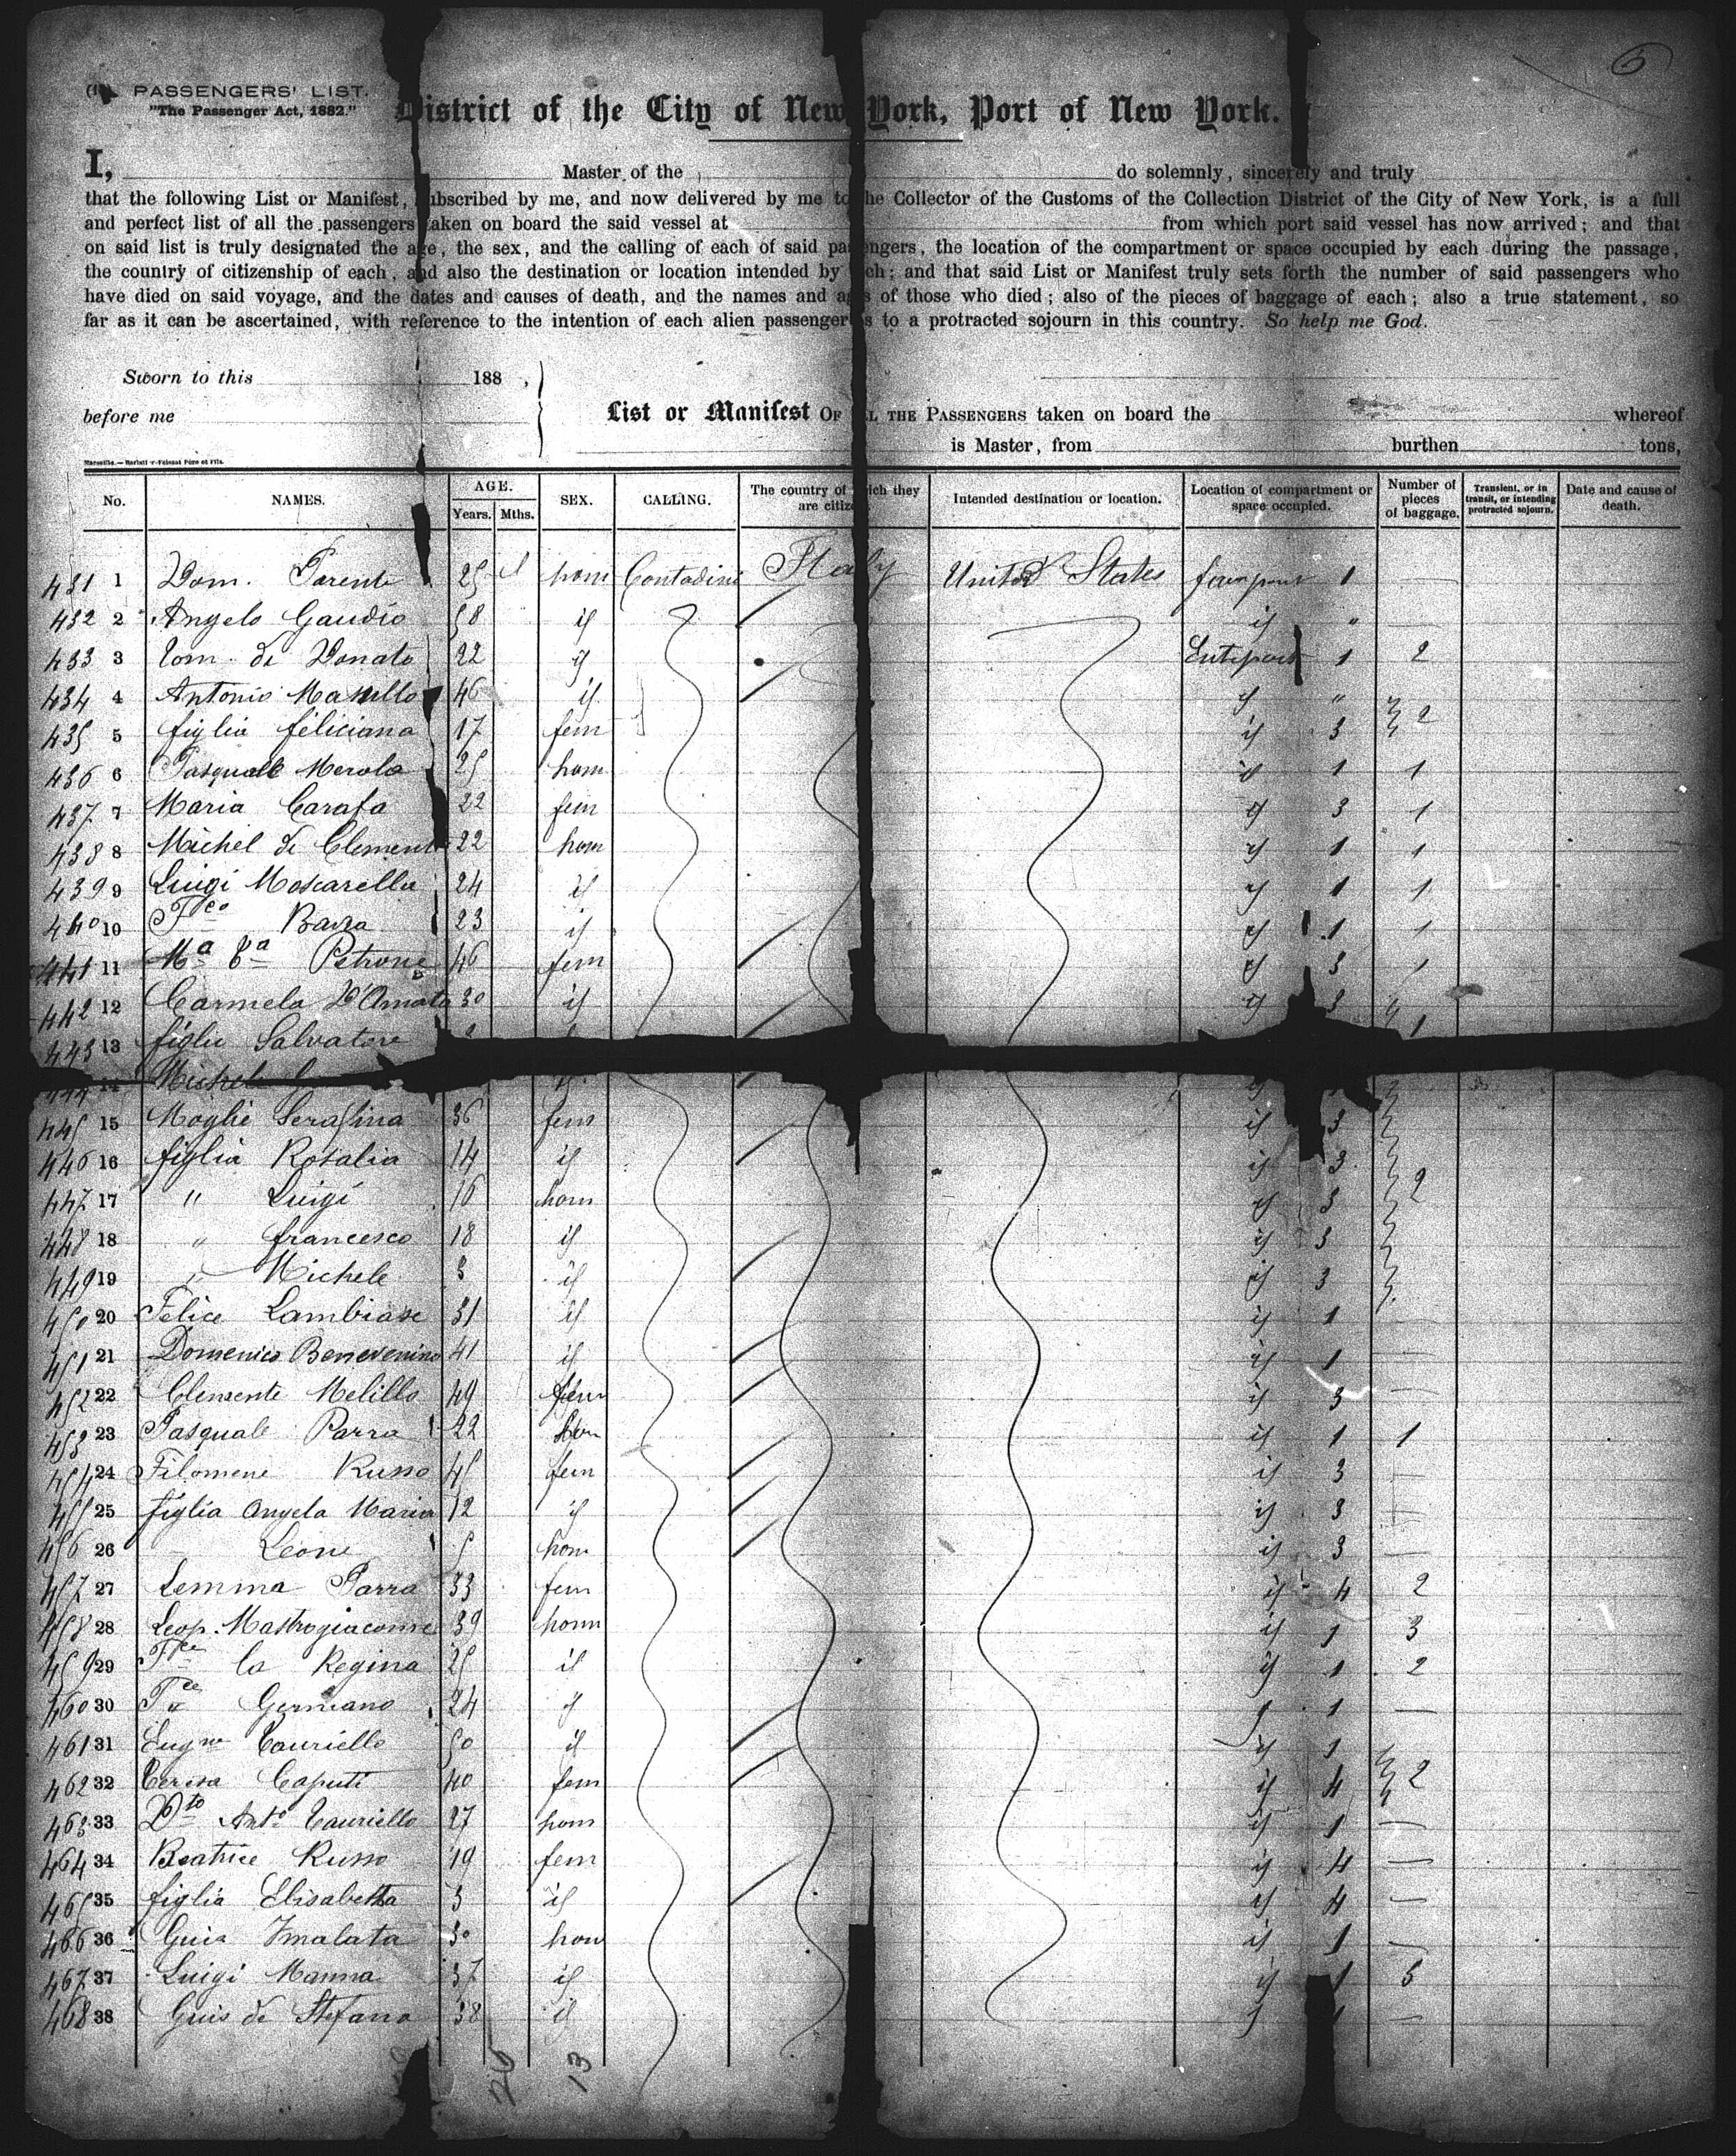 6
PASSENGERS' LIST.
"The Passenger Act, 1882."
District of the City of New York, Port of New York.
I, Master of the do solemnly, sincerely and truly
that the following List or Manifest, subscribed by me, and now delivered by me to the Collector of the Customs of the Collection District of the City of New York, is a full
and perfect list of all the passengers taken on board the said vessel at from which port said vessel has now arrived; and that
on said list is truly designated the age, the sex, and the calling of each of said passengers, the location of the compartment or space occupied by each during the passage,
the country of citizenship of each, and also the destination or location intended by each; and that said List or Manifest truly sets forth the number of said passengers who
have died on said voyage, and the dates and causes of death, and the names and ages of those who died; also of the pieces of baggage of each; also a true statement, so
far as it can be ascertained, with reference to the intention of each alien passenger as to a protracted sojourn in this country. So help me God.
Sworn to this 188 ,
before me List or Manifest OF ALL THE PASSENGERS taken on board the whereof
is Master, from burthen tons,
No. NAMES. AGE. Years. Mths. SEX. CALLING. The country of which they are citizens. Intended destination or location. Location of compartment or space occupied. Number of pieces of baggage. Transient, or in transit, or intending protracted sojourn. Date and cause of death.
431 1 Dom. Parente 25 hom Contadini Italy United States 1 —
432 2 Angelo Gaudio 58 if if " —
433 3 Tom. di Donato 22 if Entrepont 1 2
434 4 Antonio 46 if if "
435 5 figlia féliciana 17 fem if 3 2
436 6 Pasquale Merola 25 hom if 1 1
437 7 Maria Carafa 22 fem if 3 1
438 8 Michel di Clement 22 hom if 1 1
439 9 Luigi Moscarella 24 if if 1 1
440 10 Fco Barra 23 if if 1 1
441 11 Ma Petrone 46 fem if 3 1
442 12 Carmela D'Amato 30 if if 3
443 13 figlio Salvatore 1
444 14 Michele if
445 15 Moglie Serafina 36 fem if 3
446 16 figlia Rosalia 14 if if 3
447 17 " Luigi 16 hom if 3 2
448 18 " francesco 18 if if 3
449 19 " Michele 3 if if 3
450 20 Felice Lambiase 31 if if 1
451 21 Domenico Benevenino 41 if if 1 —
452 22 Clemente Melillo 49 fem if 3 —
453 23 Pasquale Parra 22 hom if 1 1
454 24 Filomene Russo 45 fem if 3 —
455 25 figlia Angela Maria 12 if if 3 —
456 26 Leone 5 hom if 3 —
457 27 Lemma Parra 33 fem if 4 2
458 28 Leop. Mastrogiacomo 39 hom if 1 3
459 29 Fce la Regina 25 if if 1 2
460 30 Fce Germano 24 if 1 —
461 31 Eugne Tauriello 50 if if 1
462 32 Teresa Caputi 40 fem if 4 2
463 33 Dto Anto Tauriello 27 hom if 1 —
464 34 Beatrice Russo 19 fem if 4 —
465 35 figlia Elisabetta 3 if if 4 —
466 36 Guis Imalata 30 hom if 1 —
467 37 Luigi Manna 37 if if 1 5
468 38 Guis de Stefano 38 if 1 —
26 13